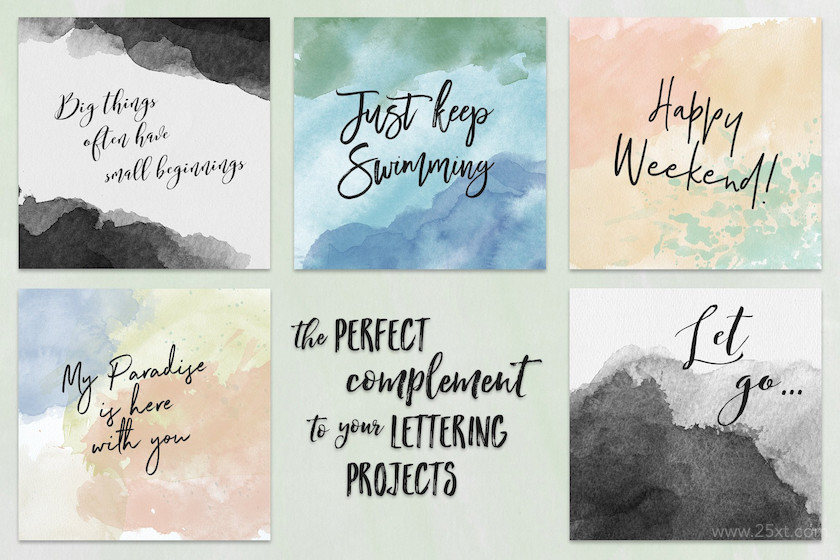 Big things
often have
small beginnings
Just keep
Swimming
Happy
Weekend!
My Paradise
is here
with you
the PERFECT
complement
to your LETTERING
PROJECTS
Let
go...
www.25xt.com